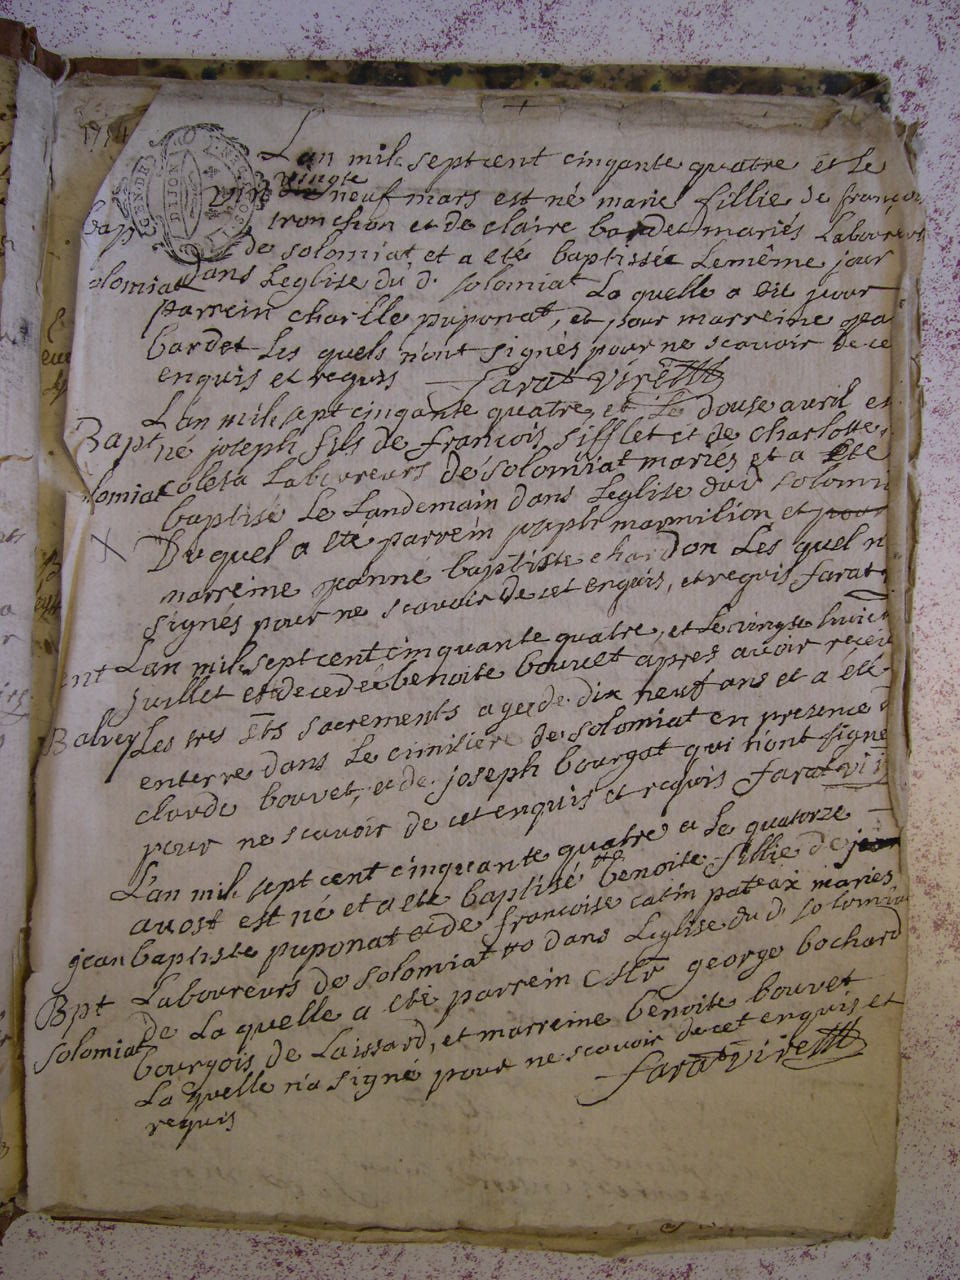 1754
L'an mil sept cent cinqante quatre et le
vingte
neuf mars est né marie fillie de françois
Bap tronchon et de claire bardet mariés Laboureurs
de solomiat, et a eté baptissée Lemême jour
solomiat dans Leglise du d. solomiat La quelle a eu pour
parrein charlle puponat, et pour marreine
bardet Les quels n'ont signés pour ne scavoir de ce
enquis et requis farat vire
L'an mil sept cinqante quatre et Le douse avril es
Bapt né joseph fils de françois sifflet et de charlotte
solomiat coleta Laboureurs de solomiat mariés et a eté
baptisé Le Landemain dans Leglise dud solomi
X Duquel a eté parrein joseph marmilion et pour
marreine jeanne baptiste chardon Les quel n
signés pour ne scavoir de cet enquis, et requis farat
L'an mil sept cent cinquante quatre, et Le vingte huict
ent juillet est decedee benoite bouvet apres avoir receu
Balvey Les tres sts sacrements agée de dix neuf ans et a eté
enterre dans Le cimitiere de solomiat en presence d
claude bouvet, et de joseph bourgat qui n'ont signe
pour ne scavoir de cet enquis et requis farat vi
L'an mil sept cent cinquante quatre et Le quatorze
auost est né et a eté baptisé benoite fillie de
jean baptiste puponat et de francoise catin pateaix mariés
Bpt Laboureurs de solomiat dans Leglise du d. solomia
solomiat de La quelle a eté parrein george bochard
bourgois de Laissard, et marreine benoite bouvet
La quelle n'a signé pour ne scavoir de cet enquis et
requis farat vire